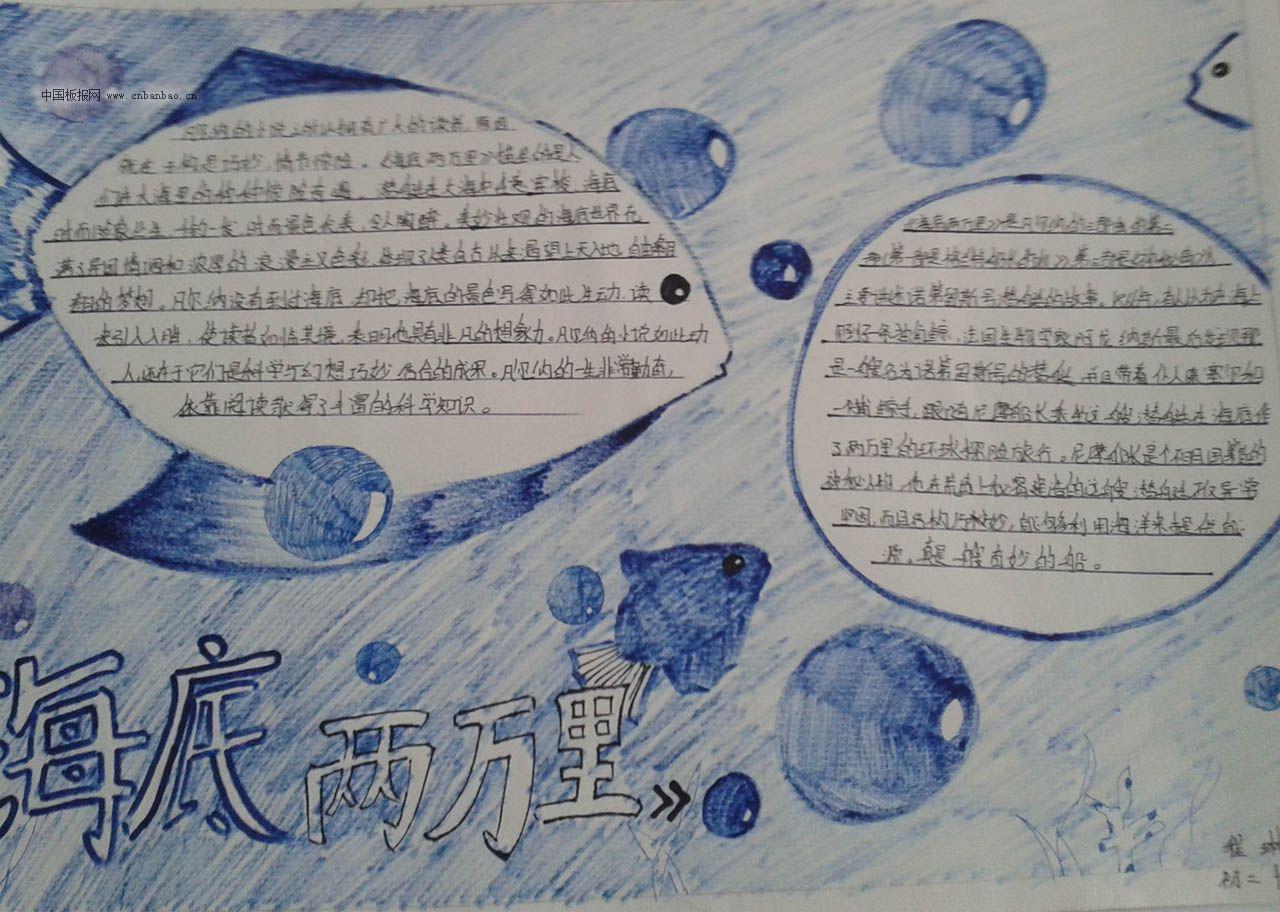 中国板报网 www.cnbanbao.cn
凡尔纳的小说之所以拥有广大的读者,原因
就在于构思巧妙,情节惊险。《海底两万里》描里的是人
们在大海里的种种惊险奇遇。潜艇在大海中任意穿梭,海底
时而险象丛生、千钧一发,时而景色优美、令人陶醉。美妙壮观的海底世界充
满了异国情调和浓厚的浪漫主义色彩,体现了人类自古以来渴望上天入地、自由翱
翔的梦想。凡尔纳没有到过海底,却把海底的景色写得如此生动,读
来引人入胜,使读者如临其境,表明他具有非凡的想象力。凡尔纳的小说如此动
人,还在于它们是科学与幻想巧妙结合的成果。凡尔纳的一生非常勤奋,
依靠阅读获得了丰富的科学知识。
《海底两万里》是凡尔纳的三部曲的第二
部(第一部是《格兰特船长的儿女》第三部是《神秘岛》)
主要讲述诺第留斯号潜艇的故事。1866年,有人以为在海上
见到了一条独角鲸,法国生物学家阿龙纳斯最后发现那
是一艘名为诺第留斯号的潜艇,并且带着仆人康塞尔和
一个捕鲸手,跟随尼摩船长乘坐这艘潜艇在海底作
了两万里的环球探险旅行。尼摩船长是个不明国籍的
神秘人物,他在荒岛上秘密建造的这艘潜艇不仅异常
坚固,而且结构巧妙,能够利用海洋来提供能
源。真是一艘奇妙的船。
海底两万里》
程
初二